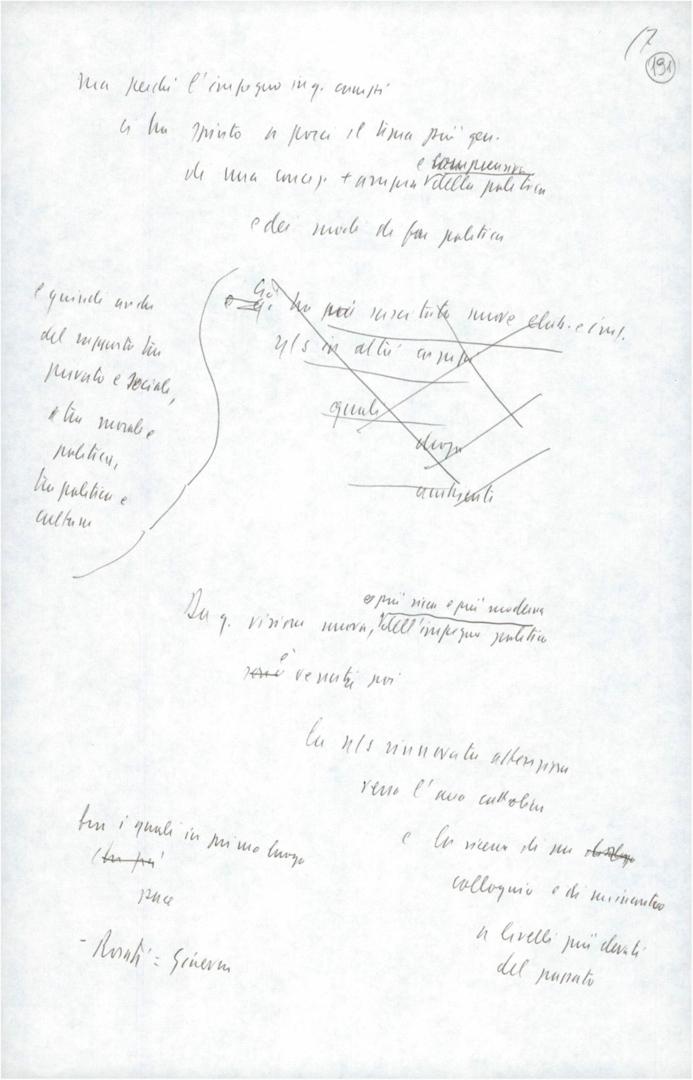 17
191
ma perché l'impegno in q. campi
ci ha spinto a porci il tema più gen.
e comprensiva
di una concez. + ampia della politica
e dei modi di far politica
e quindi anche
del rapporto tra
privato e sociale,
tra morale e
politica,
tra politica e
cultura
Ciò ha poi suscitato nuove elab. e iniz.
n/s in altri campi
quali
droga
ambiente
e più ricca e più moderna
Da q. visione nuova, dell'impegno politico
è venuta poi
la n/s rinnovata attenzione
verso l'area cattolica
e la ricerca di un
colloquio e di un incontro
a livelli più elevati
del passato
tra i quali in primo luogo
pace
- Rosati = Ginevra